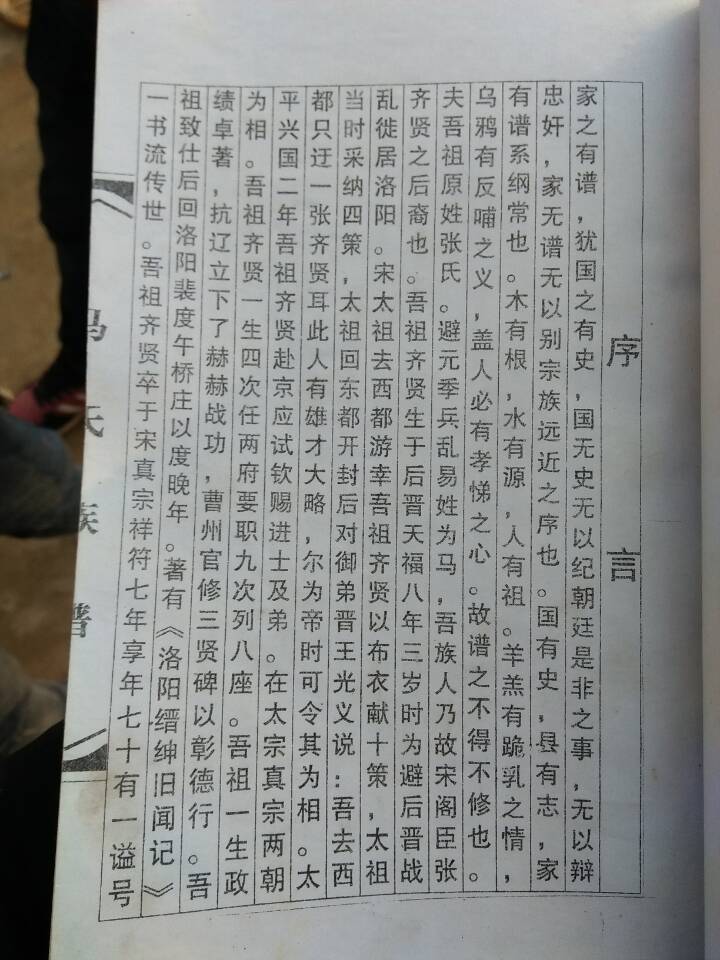 序言
家之有谱，犹国之有史，国无史无以纪朝廷是非之事，无以辩
忠奸，家无谱无以别宗族远近之序也。国有史，县有志，家
有谱系纲常也。木有根，水有源，人有祖。羊羔有跪乳之情，
乌鸦有反哺之义，盖人必有孝悌之心。故谱之不得不修也。
夫吾祖原姓张氏。避元季兵乱易姓为马，吾族人乃故宋阁臣张
齐贤之后裔也。吾祖齐贤生于后晋天福八年三岁时为避后晋战
乱徙居洛阳。宋太祖去西都游幸吾祖齐贤以布衣献十策，太祖
当时采纳四策，太祖回东都开封后对御弟晋王光义说：吾去西
都只迂一张齐贤耳此人有雄才大略，尔为帝时可令其为相。太
平兴国二年吾祖齐贤赴京应试钦赐进士及弟。在太宗真宗两朝
为相。吾祖齐贤一生四次任两府要职九次列八座。吾祖一生政
绩卓著，抗辽立下了赫赫战功，曹州官修三贤碑以彰德行。吾
祖致仕后回洛阳裴度午桥庄以度晚年。著有《洛阳缙绅旧闻记》
一书流传世。吾祖齐贤卒于宋真宗祥符七年享年七十有一谥号
马氏族谱